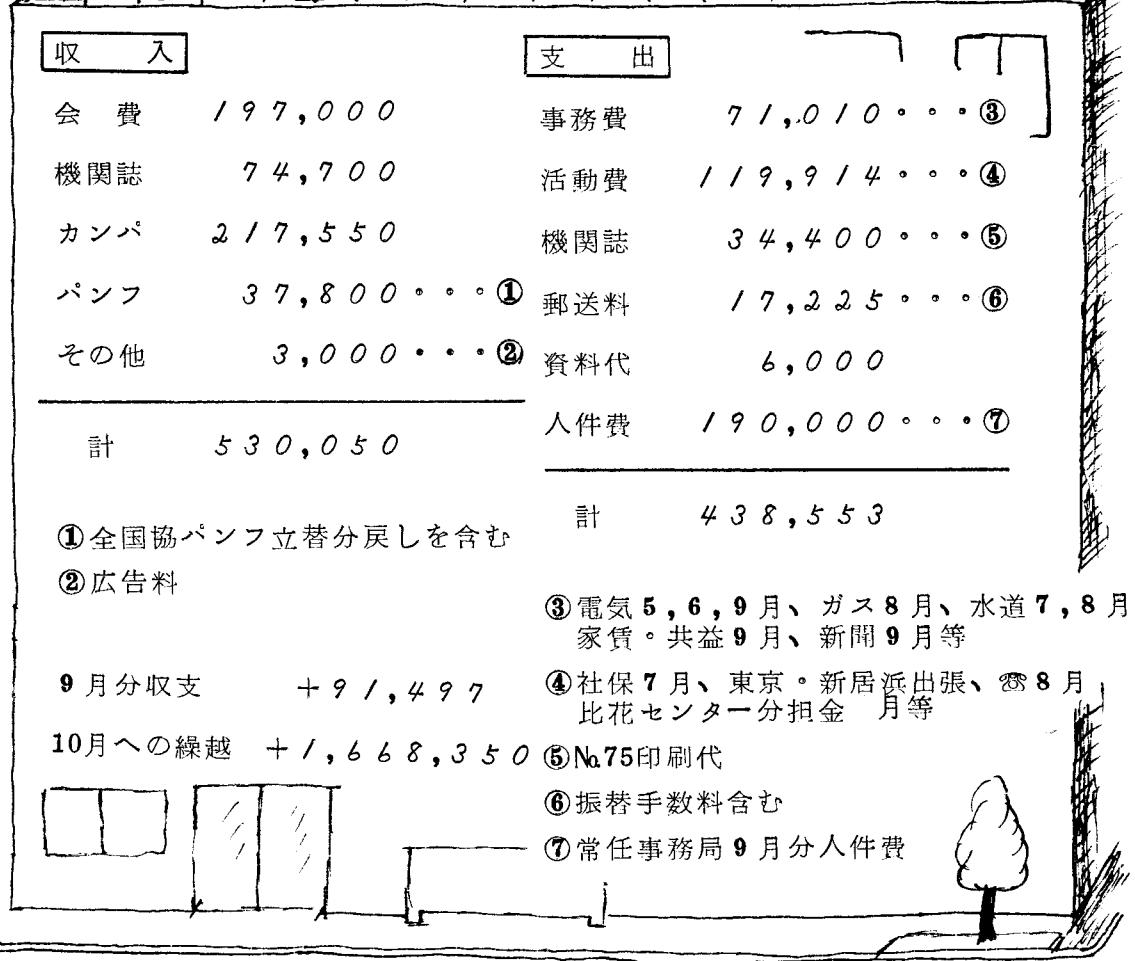 収 入
会 費 197,000
機関誌 74,700
カンパ 217,550
パンフ 37,800・・・①
その他 3,000・・・②
計 530,050
①全国協パンフ立替分戻しを含む
②広告料
9月分収支 +91,497
10月への繰越 +1,668,350
支 出
事務費 71,010・・・③
活動費 119,914・・・④
機関誌 34,400・・・⑤
郵送料 17,225・・・⑥
資料代 6,000
人件費 190,000・・・⑦
計 438,553
③電気5,6,9月、ガス8月、水道7,8月
家賃・共益9月、新聞9月等
④社保7月、東京・新居浜出張、☎8月
比花センター分担金 月等
⑤No.75印刷代
⑥振替手数料含む
⑦常任事務局9月分人件費